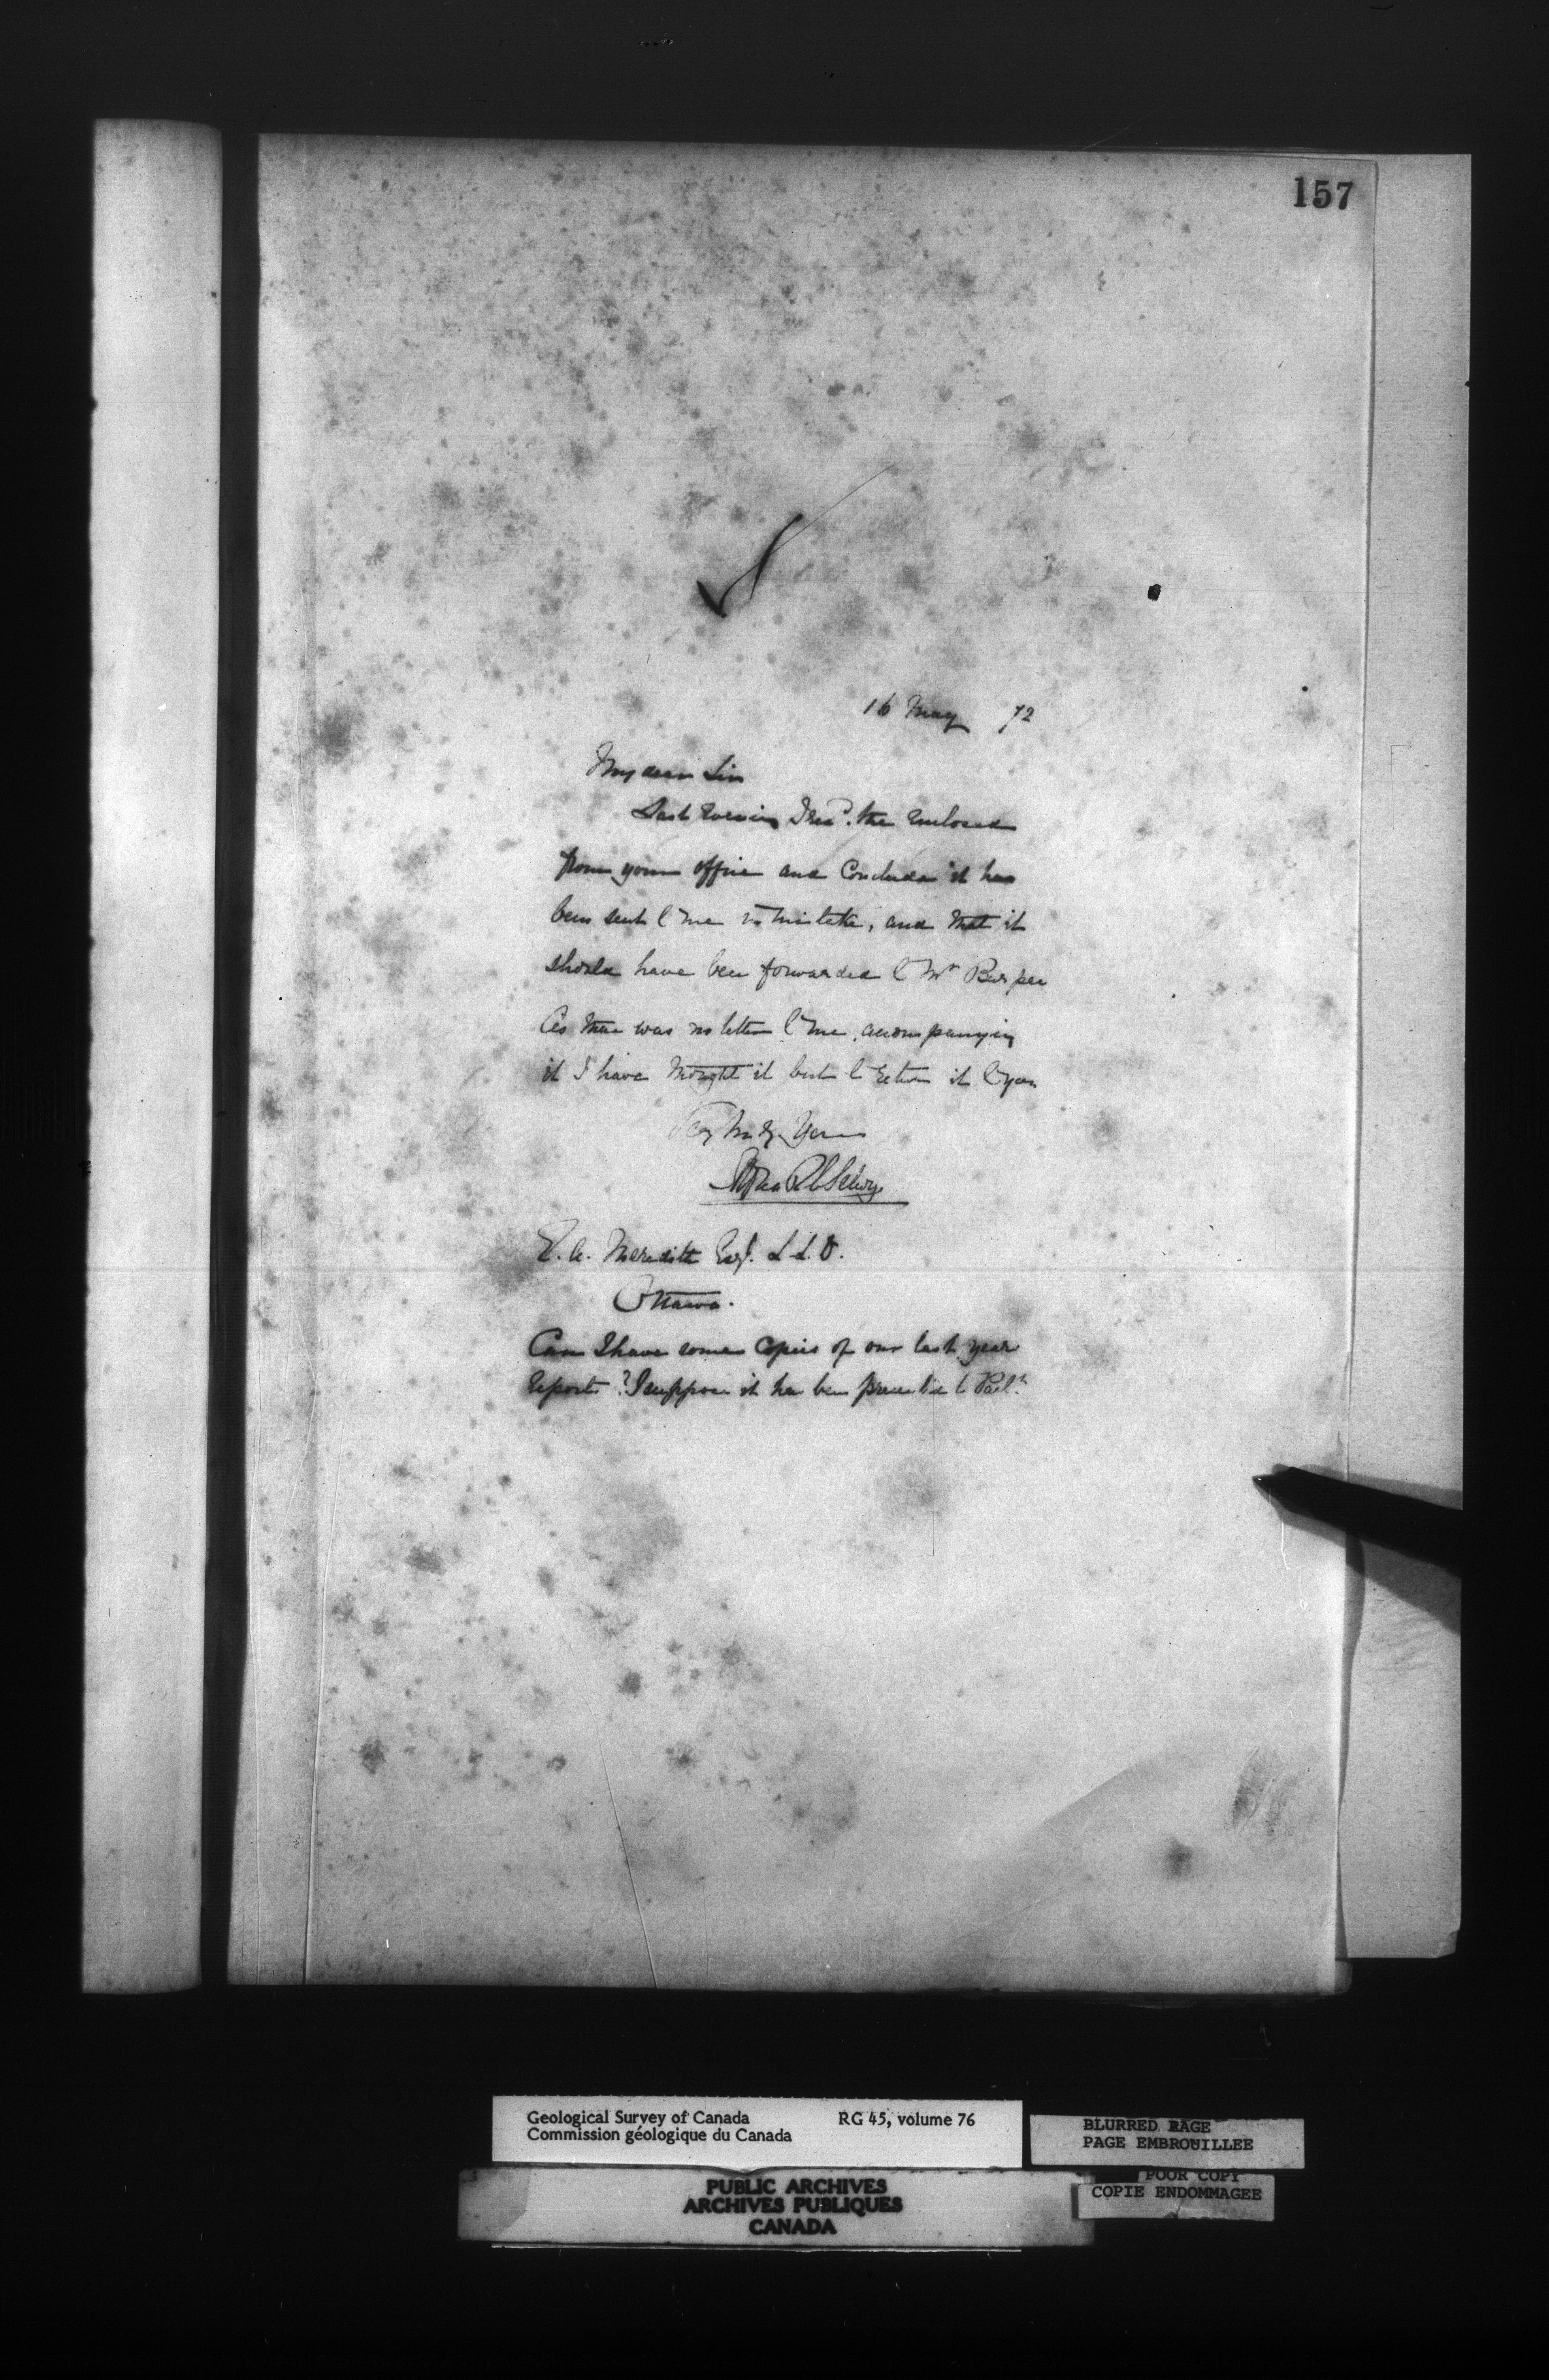 157
16 May 72
My dear Sir
Last Evening I recd. the Enclosed
from your office and Conclude it has
been sent to me in mistake, and that it
should have been forwarded to Mr Burpee
As there was no letter to me accompanying
it I have thought it best to return it to you
Very truly Yours
Alfred R C Selwyn
E. A. Meredith Esq. L.L.D.
Ottawa.
Can I have some Copies of our last year
Report? I suppose it has been presented to Parlt.
Geological Survey of Canada RG 45, volume 76
Commission géologique du Canada
BLURRED PAGE
PAGE EMBROUILLEE
POOR COPY
COPIE ENDOMMAGEE
PUBLIC ARCHIVES
ARCHIVES PUBLIQUES
CANADA